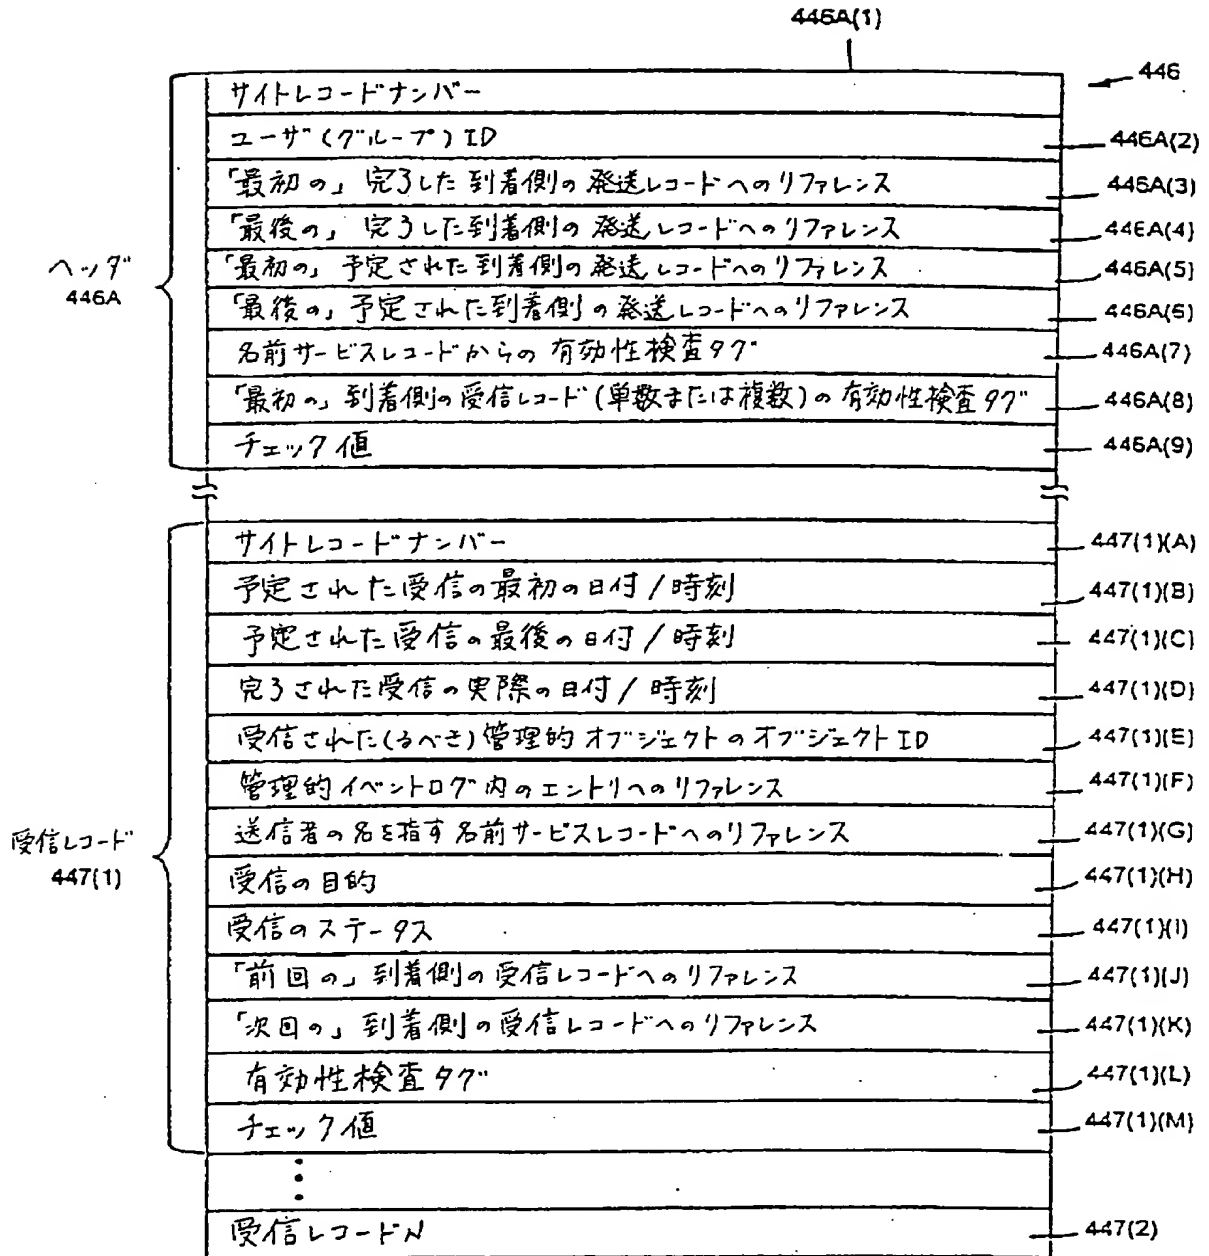 446A(1)
446
サイトレコードナンバー
ユーザ(グループ)ID 446A(2)
「最初の」完了した到着側の発送レコードへのリファレンス 446A(3)
「最後の」完了した到着側の発送レコードへのリファレンス 446A(4)
「最初の」予定された到着側の発送レコードへのリファレンス 446A(5)
ヘッダ
446A
「最後の」予定された到着側の発送レコードへのリファレンス 446A(6)
名前サービスレコードからの有効性検査タグ 446A(7)
「最初の」到着側の受信レコード(単数または複数)の有効性検査タグ 446A(8)
チェック値 446A(9)
サイトレコードナンバー 447(1)(A)
予定された受信の最初の日付/時刻 447(1)(B)
予定された受信の最後の日付/時刻 447(1)(C)
完了された受信の実際の日付/時刻 447(1)(D)
受信された(るべき)管理的オブジェクトのオブジェクトID 447(1)(E)
管理的イベントログ内のエントリへのリファレンス 447(1)(F)
送信者の名を指す名前サービスレコードへのリファレンス 447(1)(G)
受信レコード
447(1)
受信の目的 447(1)(H)
受信のステータス 447(1)(I)
「前回の」到着側の受信レコードへのリファレンス 447(1)(J)
「次回の」到着側の受信レコードへのリファレンス 447(1)(K)
有効性検査タグ 447(1)(L)
チェック値 447(1)(M)
受信レコードN 447(2)